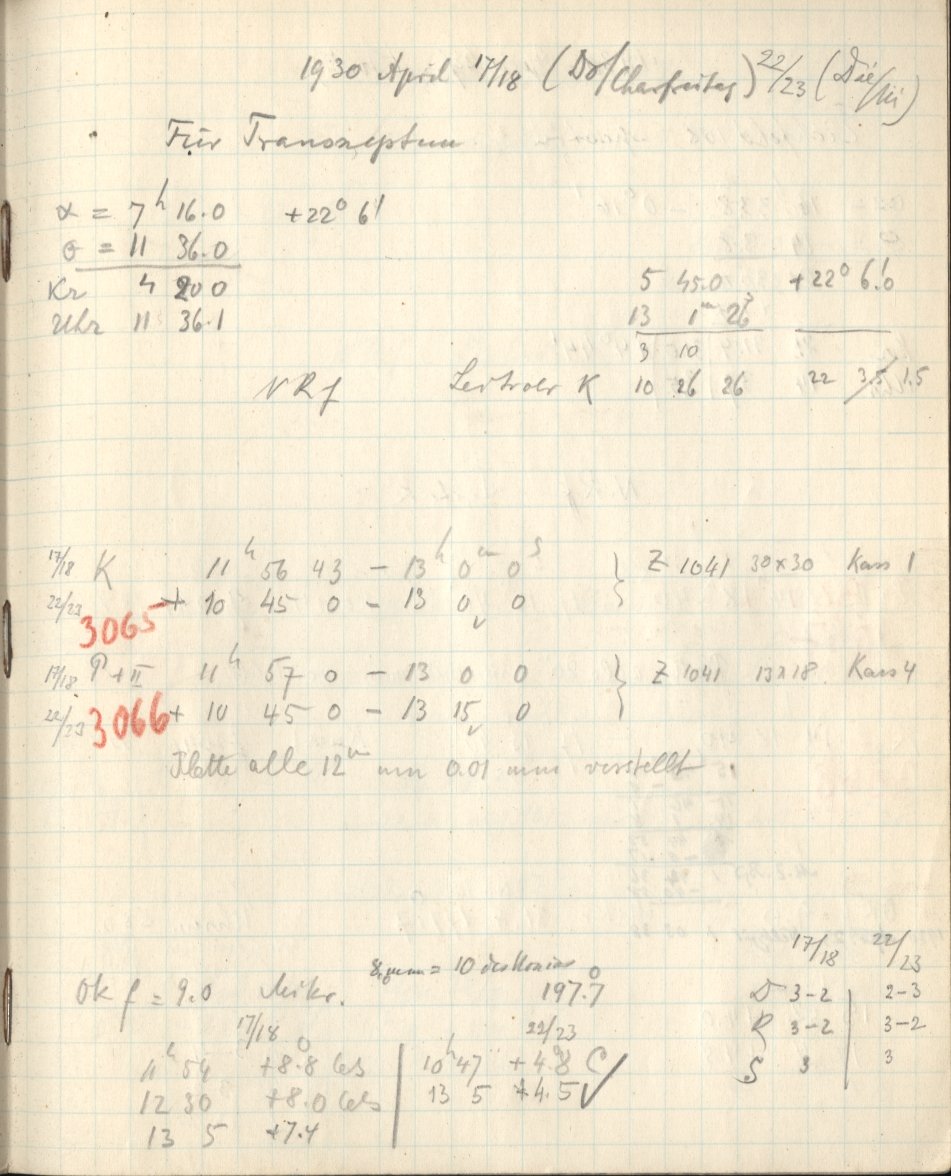 1930 April 17/18 (Do/Charfreitag) 22/23 (Die/Mi)
Für Transneptun
α = 7h 16.0 +22° 6'
θ = 11 36.0
Kr 4 20 0
Uhr 11 36.1
5 45.0 +22° 6.'0
13 1m 26s
3 10
NRf Leitrohr K 10 26 26 22 3.5 1.5
17/18 K 11h 56 43 – 13h 0m 0s } Z 1041 30x30 Kass 1
22/23 + 10 45 0 – 13 0 0
3065
17/18 P + II 11h 57 0 – 13 0 0 } Z 1041 13x18 Kass 4
22/23 3066 + 10 45 0 – 13 15 0
Platte alle 12m um 0.01 mm verstellt.
17/18 22/23
mm = 10 des Nonius
Ok f = 9.0 Mikr. 197.°7 D 3-2 2-3
17/18 22/23 R 3-2 3-2
11h 54 +8.°8 Cels 10h 47 +4.°8 C S 3 3
12 30 +8.0 Cels 13 5 +4.5
13 5 +7.4